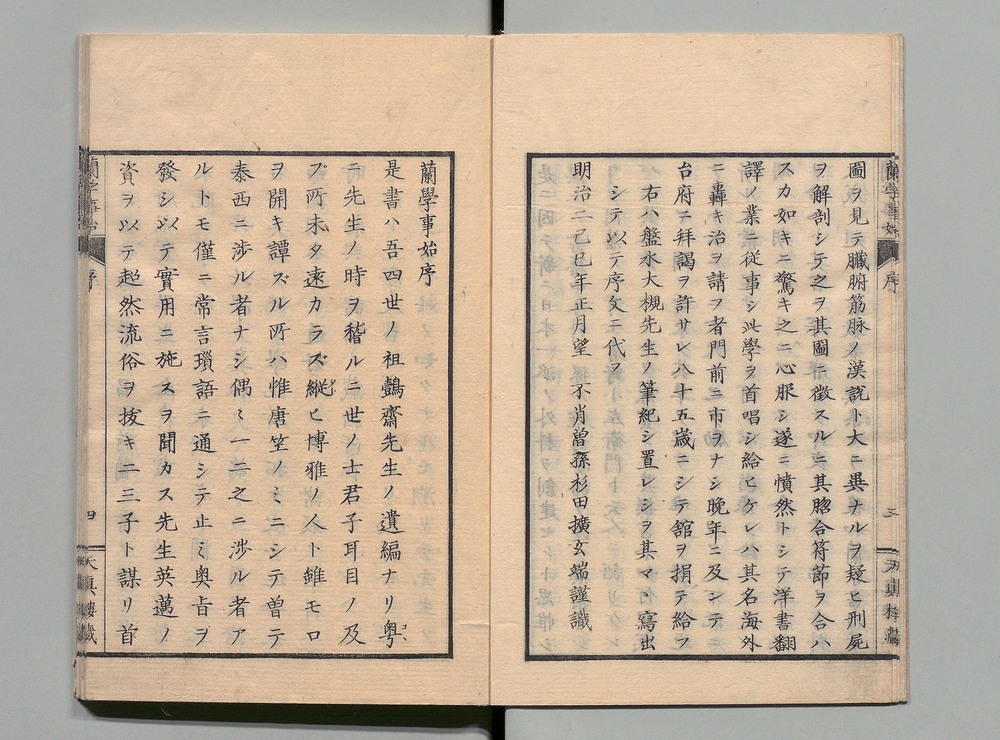 蘭學事始 序 三 天眞樓藏
圖ヲ見テ臟腑筋脉ノ漢説ト大ニ異ナルヲ疑ヒ刑屍
ヲ解剖シテ之ヲ其圖ニ徴スルニ其脗合符節ヲ合ハ
スカ如キニ驚キ之ニ心服シ遂ニ憤然トシテ洋書翻
譯ノ業ニ従事シ此學ヲ首唱シ給ヒケレハ其名海外
ニ轟キ治ヲ請フ者門前ニ市ヲナシ晩年ニ及ンテ
台府ニ拜謁ヲ許サレ八十五歳ニシテ舘ヲ捐テ給フ
右ハ盤水大槻先生ノ筆紀シ置レシヲ其マヽ寫出
シテ以テ序文ニ代フ
明治二己巳年正月望 不肖曾孫杉田擴玄端謹識
蘭學事始序
是書ハ吾四世ノ祖鷧齋先生ノ遺編ナリ粤コヽ
ニ先生ノ時ヲ稽ルニ世ノ士君子耳目ノ及
ブ所未タ遠カラズ縦ヒ博雅ノ人ト雖モ口
ヲ開キ譚ズル所ハ惟唐竺ノミニシテ曽テ
泰西ニ渉ル者ナシ偶々一二之ニ渉ル者ア
ルトモ僅ニ常言瑣語ニ通シテ止ミ奥旨ヲ
發シ以テ實用ニ施スヲ聞カス先生英邁ノ
資ヲ以テ超然流俗ヲ抜キ二三子ト謀リ首
蘭學事始 序 四 天眞樓藏